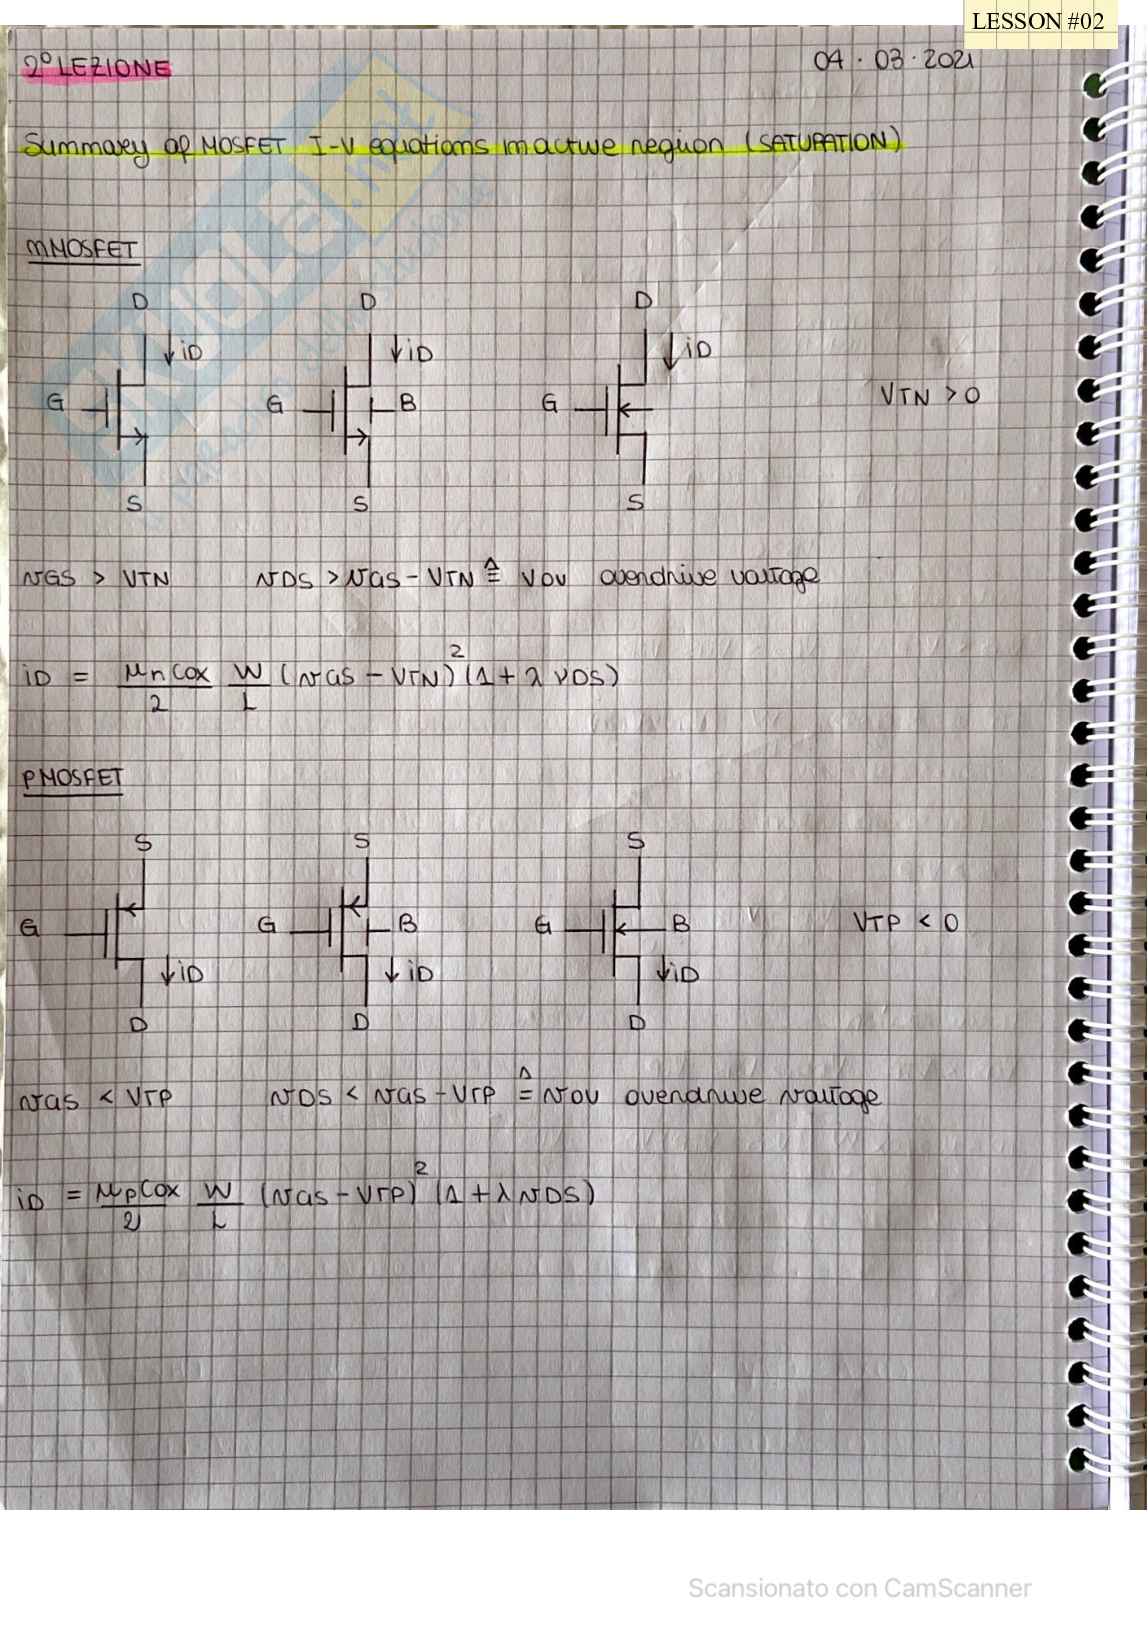 LESSON #02
2° LEZIONE
04 · 03 · 2021
Summary of MOSFET I-V equations in active region (SATURATION)
nMOSFET
D D D
iD iD iD
G G B G VTN > 0
S S S
vGS > VTN vDS > vGS - VTN ≙ vov overdrive voltage
iD = μn Cox / 2 W / L (vGS - VTN)² (1 + λ vDS)
PMOSFET
S S S
G G B G B VTP < 0
iD iD iD
D D D
vGS < VTP vDS < vGS - VTP ≙ vov overdrive voltage
iD = μp Cox / 2 W / L (vGS - VTP)² (1 + λ vDS)
Scansionato con CamScanner